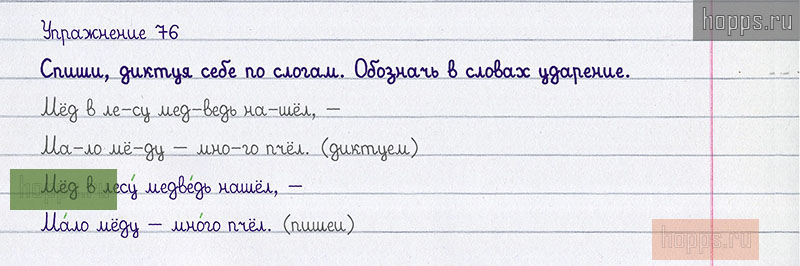 hopps.ru
Упражнение 76
Спиши, диктуя себе по слогам. Обозначь в словах ударение.
Мёд в ле-су мед-ведь на-шёл, —
Ма-ло мё-ду — мно-го пчёл. (диктуем)
Мёд в лесу́ медве́дь нашёл, —
Ма́ло мёду — мно́го пчёл. (пишеи)
hopps.ru